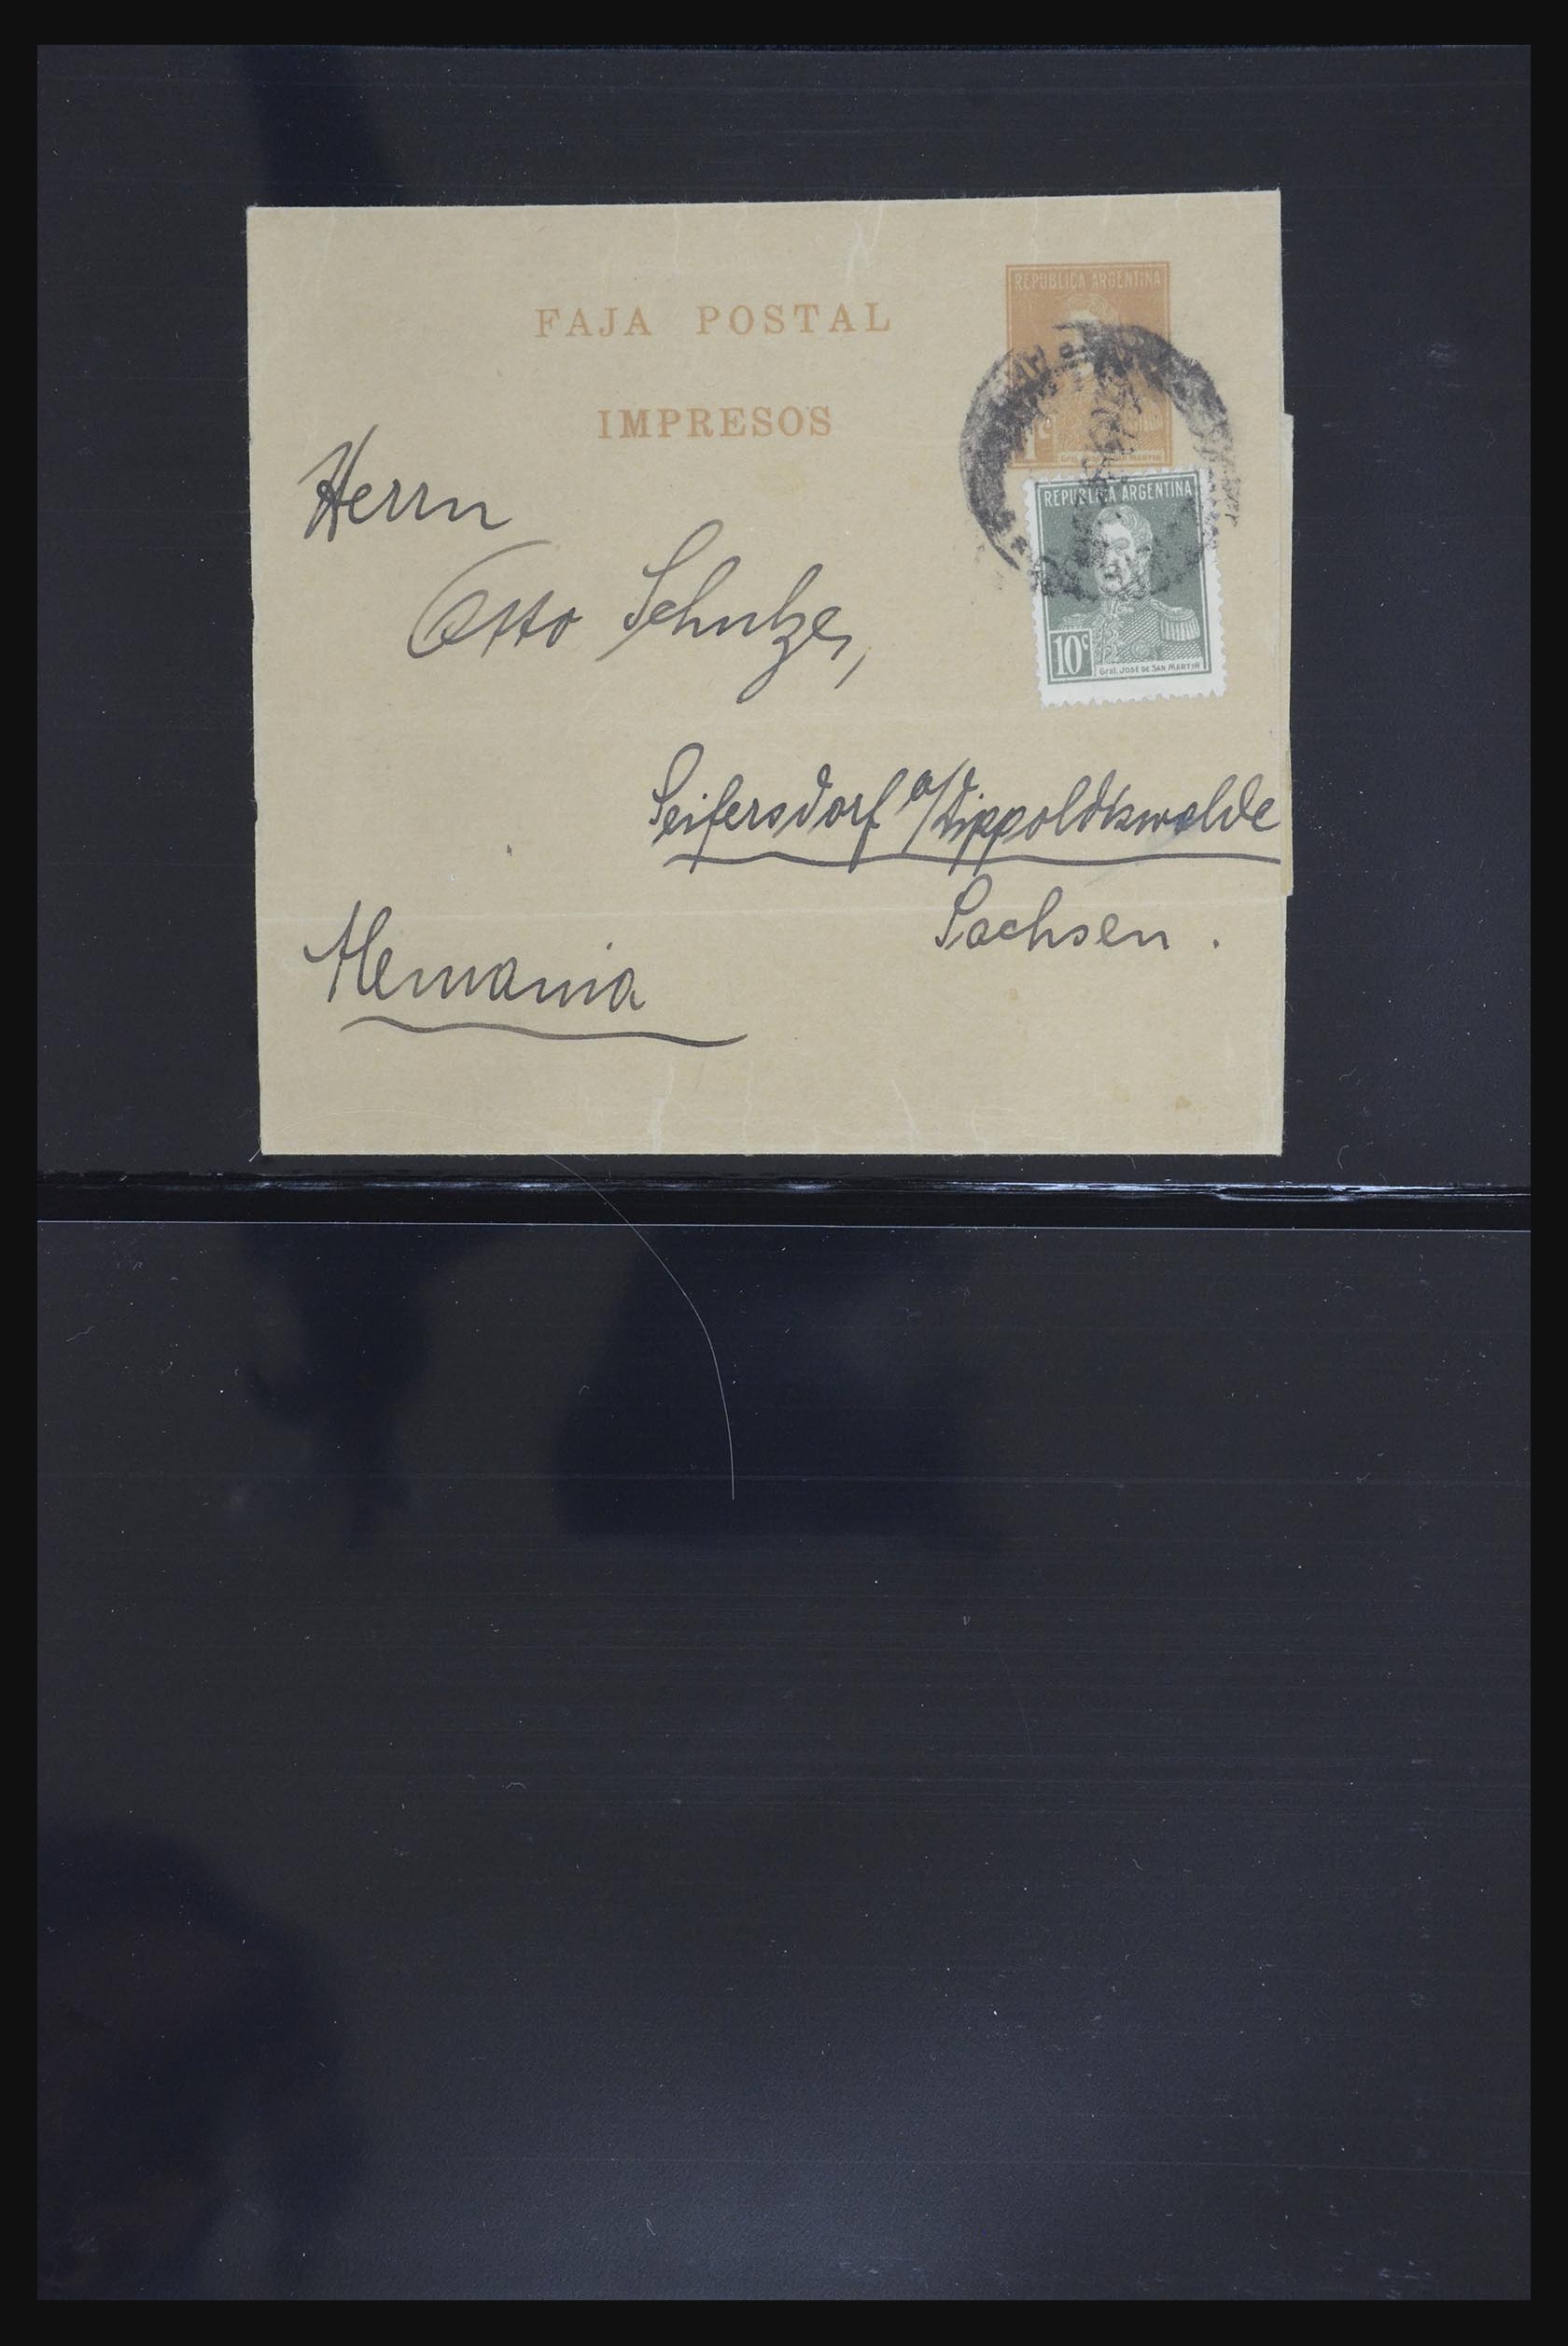 FAJA POSTAL
IMPRESOS
REPUBLICA ARGENTINA
1c
Gral. José de San Martin
REPUBLICA ARGENTINA
10c
Gral. José de San Martin
Herrn
Otto Schulze,
Seifersdorf a/Dippoldiswalde
Sachsen.
Alemania